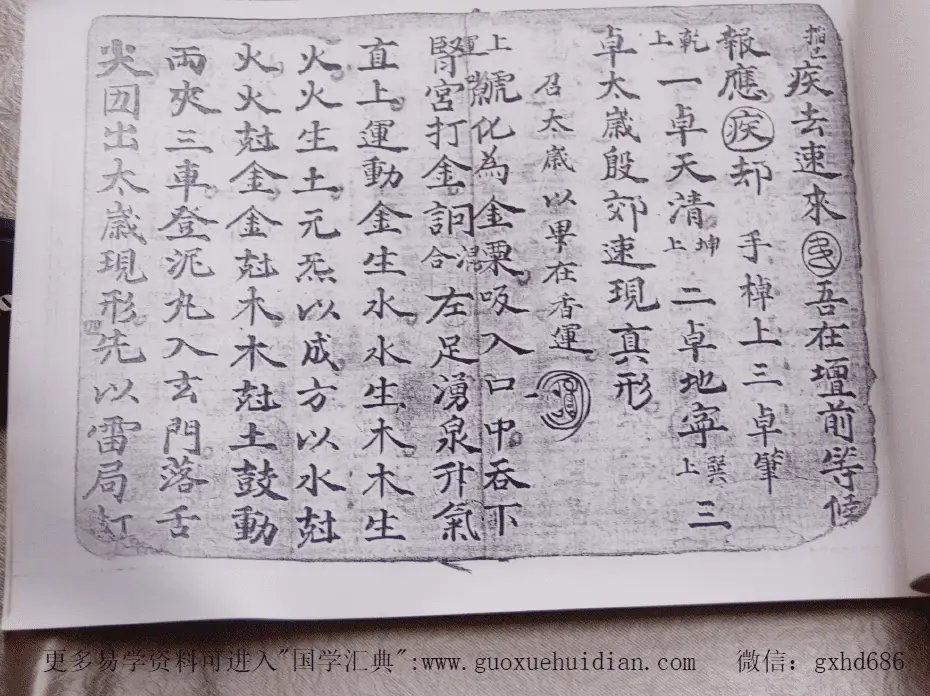 疾去速來 吾在壇前等候
報應疾却 手棹上三卓筆
乾上一卓天清坤上二卓地寧巽上三
卓太歲殷郊速現真形
召太歲以畢在香運
上虩化為金粟吸入口中吞下
腎宮打金詗混合左足湧泉升氣
直上運動金生水水生木木生
火火生土元炁以成方以水尅
火火尅金金尅木木尅土鼓動
兩夾三車登泥丸入玄門落舌
尖囙出太歲現形先以雷局打
更多易学资料可进入"国学汇典":www.guoxuehuidian.com 微信：gxhd686